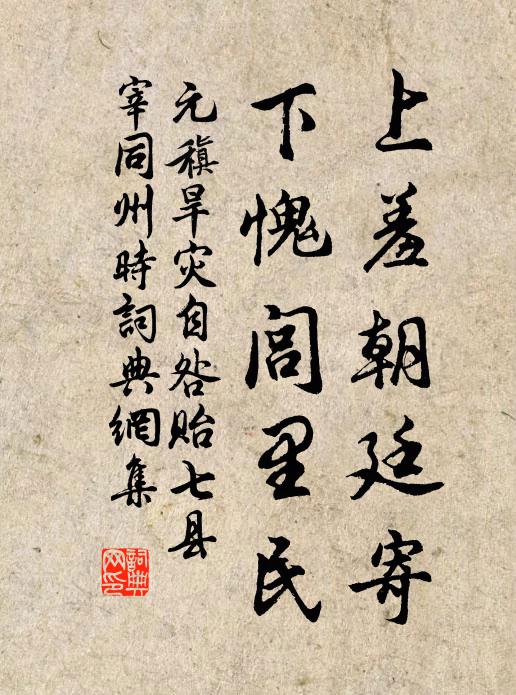 上羞朝廷寄
下愧闾里民
元稹旱灾自咎贻七县
宰同州时詞典網集
詞典网印